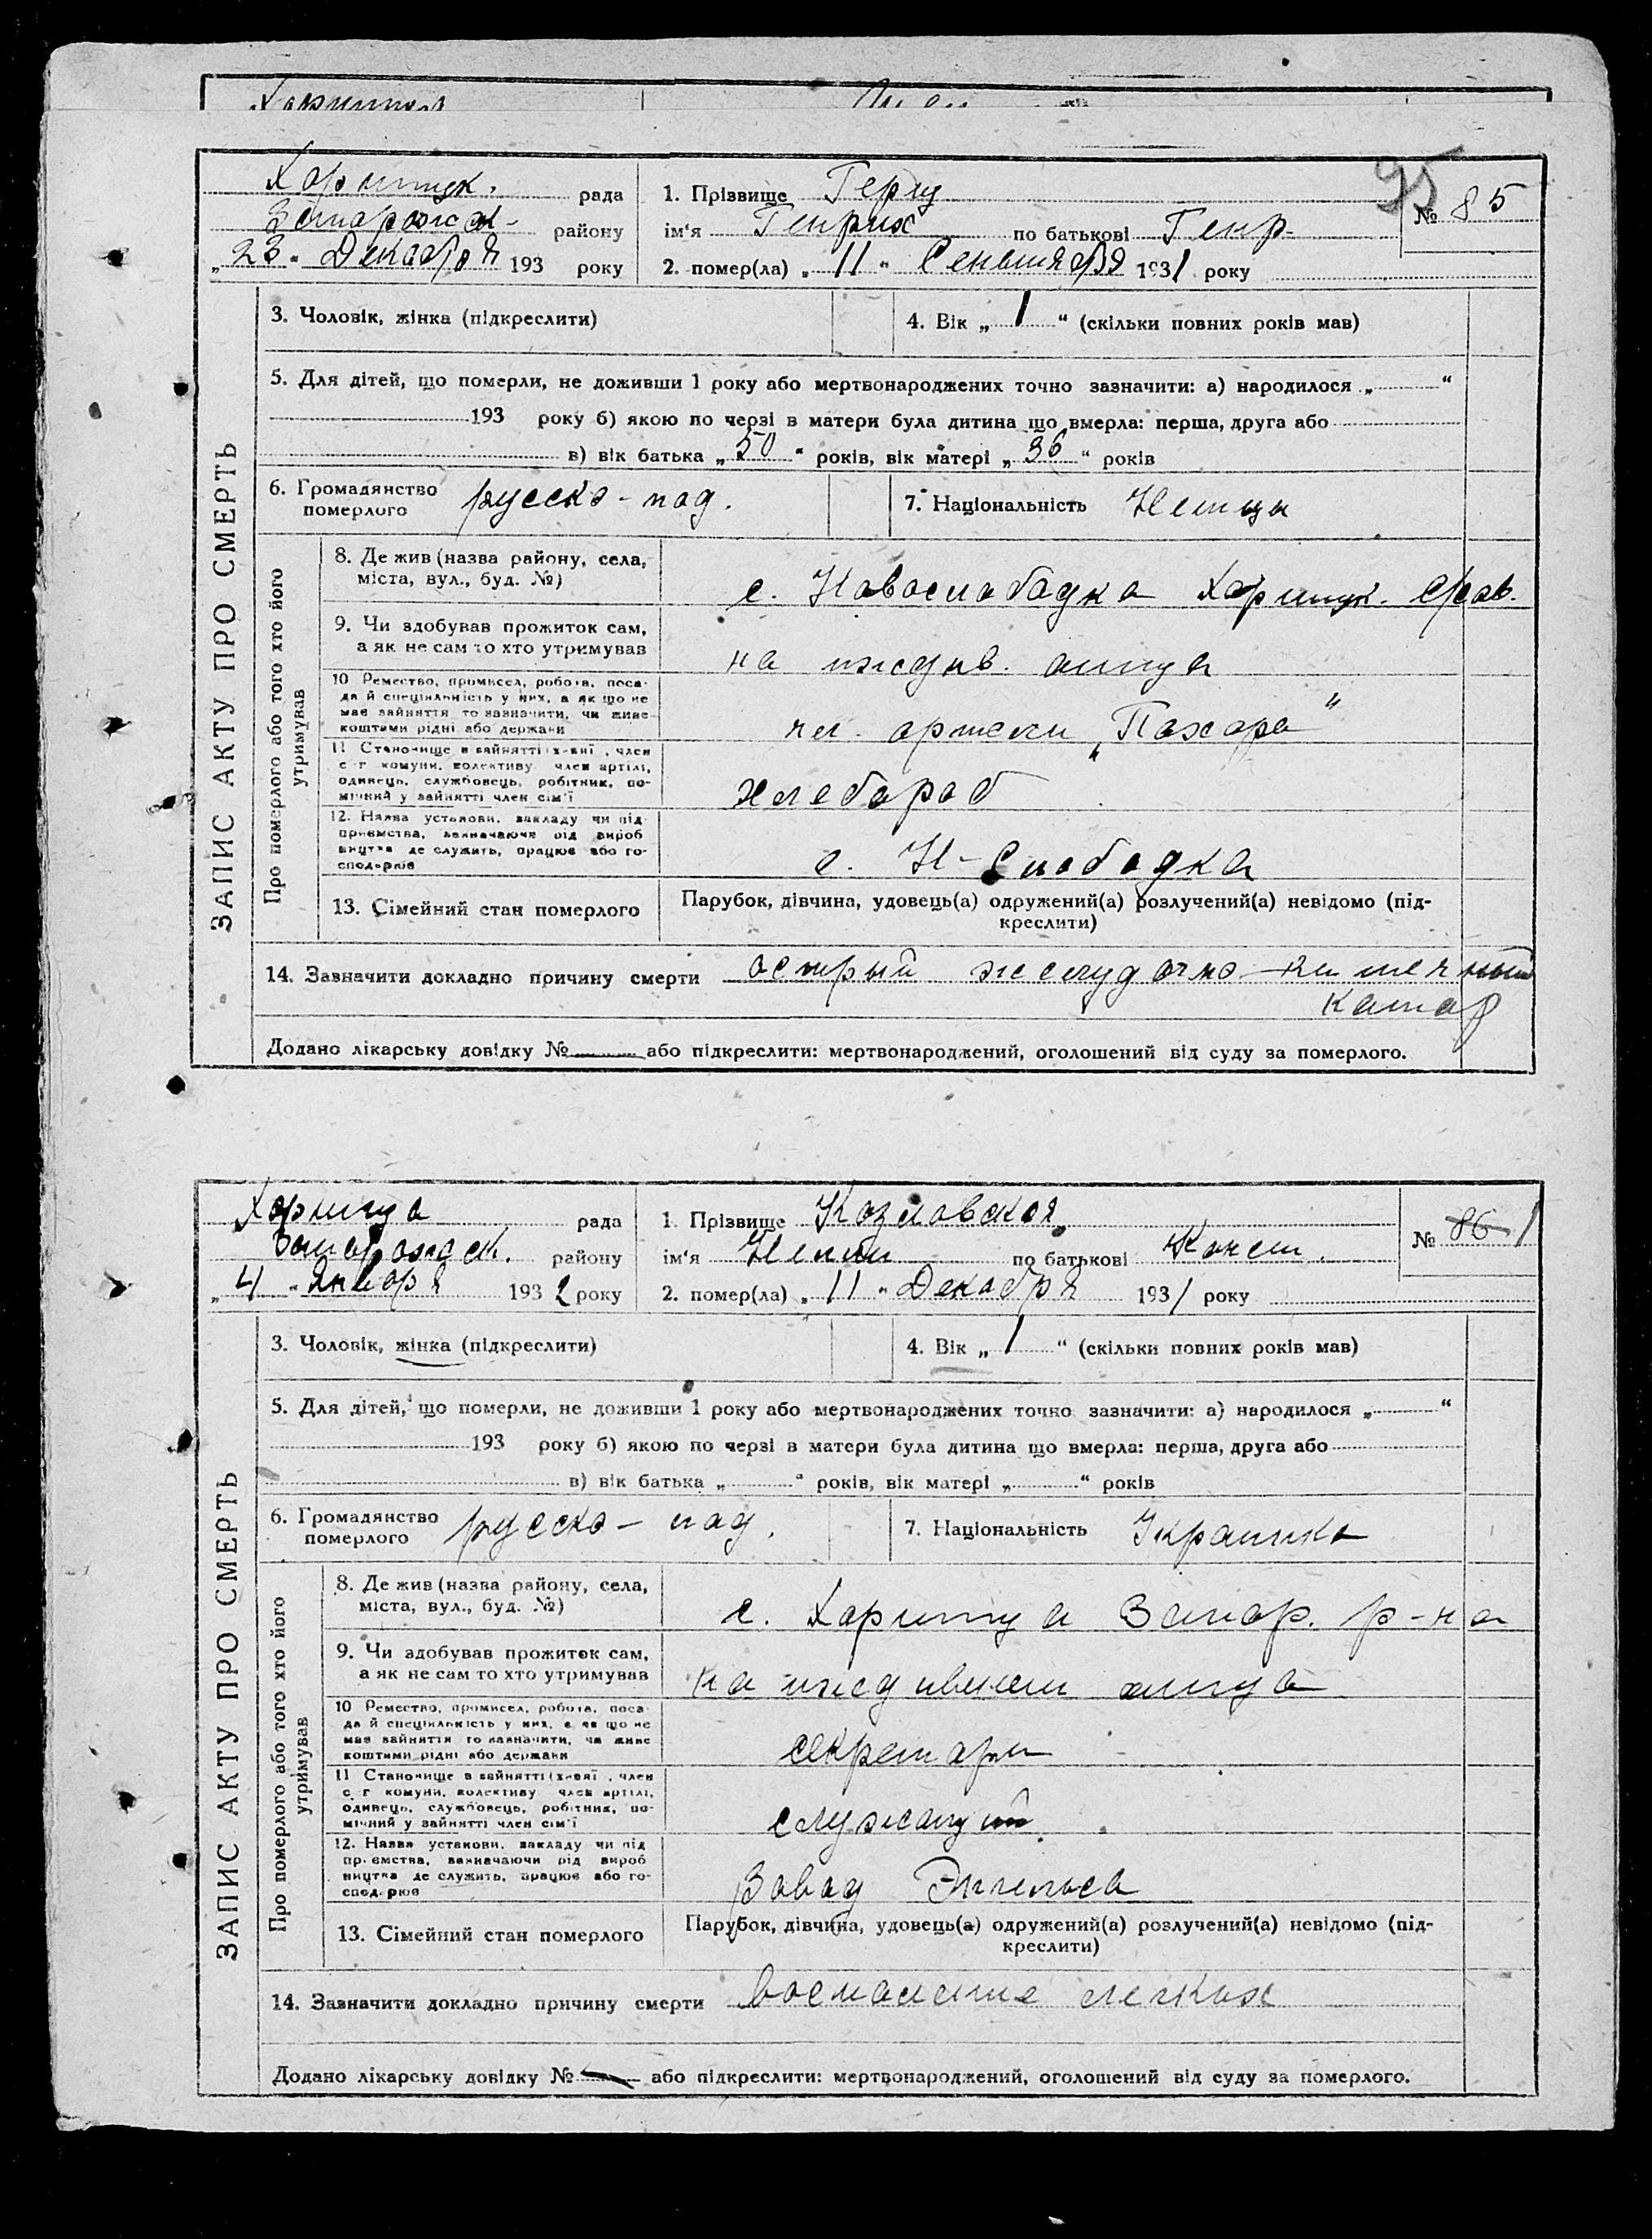 95
Хортицк. рада
Запорожск- району
„23" Декабря 193 року
1. Прізвище Герц
ім'я Генрих по батькові Генр-
2. помер(ла) „11" Сентября 1931 року
№ 85
ЗАПИС АКТУ ПРО СМЕРТЬ
3. Чоловік, жінка (підкреслити)
4. Вік „1" (скільки повних років мав)
5. Для дітей, що померли, не доживши 1 року або мертвонароджених точно зазначити: а) народилося „ "
193 року б) якою по черзі в матери була дитина що вмерла: перша, друга або
в) вік батька „50" років, вік матері „36" років
6. Громадянство
померлого
русско-под.
7. Національність Немцы
Про померлого або того хто його
утримував
8. Де жив (назва району, села,
міста, вул., буд. №)
с. Новослободка Хортицк. с/сов.
9. Чи здобував прожиток сам,
а як не сам то хто утримував
на иждив. отца
10 Ремество, промисел, робота, поса-
да й спеціяльність у них, а як що не
має зайняття то зазначити, чи живе
коштами рідні або держави
чл. артели „Пахарь"
11 Становище в зайнятті (х-яні, член
с-г комуни, колективу член артілі,
одинець, службовець, робітник, по-
мічний у зайнятті член сім'ї
хлебороб
12. Назва установи, закладу чи під-
приємства, зазначаючи рід вироб
ництва де служить, працює або го-
сподарює
с. Н-Слободка
13. Сімейний стан померлого
Парубок, дівчина, удовець(а) одружений(а) розлучений(а) невідомо (під-
креслити)
14. Зазначити докладно причину смерти острый желудочно-кишечный
катар
Додано лікарську довідку № або підкреслити: мертвонароджений, оголошений від суду за померлого.
Хортица рада
Запорожск. району
„4" Января 1932 року
1. Прізвище Козловская
ім'я Нелли по батькові Конст.
2. помер(ла) „11" Декабря 1931 року
№ 86 1
ЗАПИС АКТУ ПРО СМЕРТЬ
3. Чоловік, жінка (підкреслити)
4. Вік „1" (скільки повних років мав)
5. Для дітей, що померли, не доживши 1 року або мертвонароджених точно зазначити: а) народилося „ "
193 року б) якою по черзі в матери була дитина що вмерла: перша, друга або
в) вік батька „ " років, вік матері „ " років
6. Громадянство
померлого
русско- под.
7. Національність Украинка
Про померлого або того хто його
утримував
8. Де жив (назва району, села,
міста, вул., буд. №)
с. Хортица Запор. р-на
9. Чи здобував прожиток сам,
а як не сам то хто утримував
на иждивении отца
10 Ремество, промисел, робота, поса-
да й спеціяльність у них, а як що не
має зайняття то зазначити, чи живе
коштами рідні або держави
секретарь
11 Становище в зайнятті (х-яні, член
с-г комуни, колективу член артілі,
одинець, службовець, робітник, по-
мічний у зайнятті член сім'ї
служащий
12. Назва установи, закладу чи під
приємства, зазначаючи рід вироб
ництва де служить, працює або го-
сподарює
Завод Энгельса
13. Сімейний стан померлого
Парубок, дівчина, удовець(а) одружений(а) розлучений(а) невідомо (під-
креслити)
14. Зазначити докладно причину смерти воспаление легких
Додано лікарську довідку № або підкреслити: мертвонароджений, оголошений від суду за померлого.